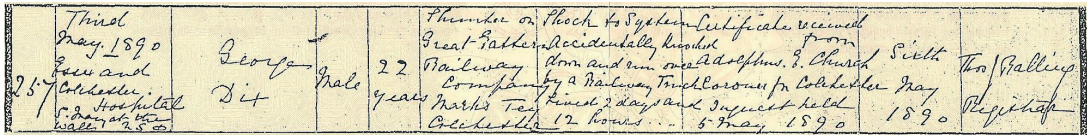 257
Third
May 1890
Essex and
Colchester
Hospital
S. Mary at the
Wall
George
Dix
Male
22
years
Shunter on
Great Eastern
Railway
Company
Marks Tey
Colchester
Shock to System
Accidentally knocked
down and run over
by a Railway Truck
Lived 2 days and
12 hours
Certificate received
from
Adolphus. E. Church
Coroner for Colchester
Inquest held
5 May 1890
Sixth
May
1890
Thos J Balling
Registrar